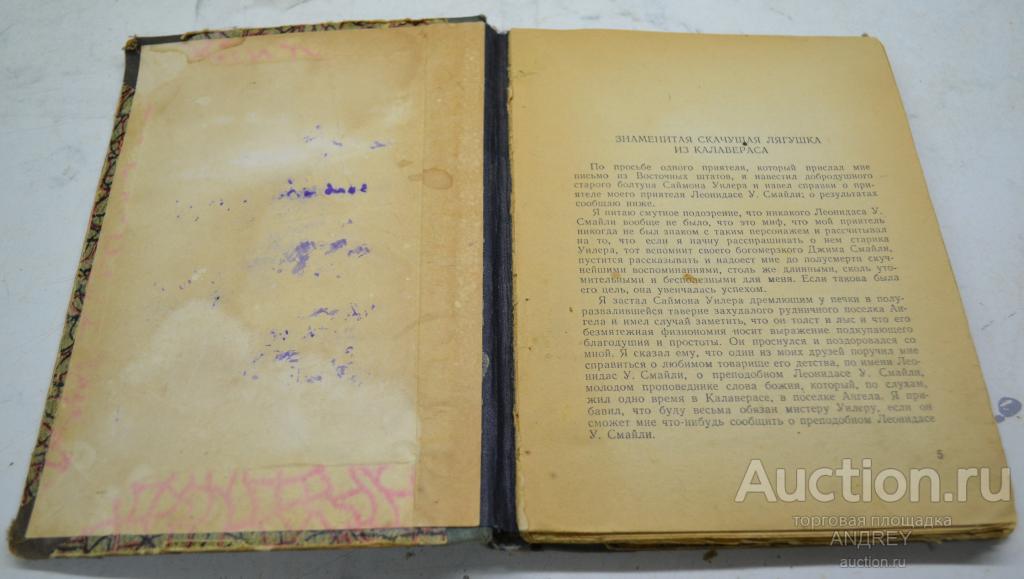 ЗНАМЕНИТАЯ СКАЧУЩАЯ ЛЯГУШКА
ИЗ КАЛАВЕРАСА
По просьбе одного приятеля, который прислал мне
письмо из Восточных штатов, я навестил добродушного
старого болтуна Саймона Уилера и навел справки о при-
ятеле моего приятеля Леонидасе У. Смайли; о результатах
сообщаю ниже.
Я питаю смутное подозрение, что никакого Леонидаса У.
Смайли вообще не было, что это миф, что мой приятель
никогда не был знаком с таким персонажем и рассчитывал
на то, что если я начну расспрашивать о нем старика
Уилера, тот вспомнит своего богомерзкого Джима Смайли,
пустится рассказывать и надоест мне до полусмерти скуч-
нейшими воспоминаниями, столь же длинными, сколь уто-
мительными и бесполезными для меня. Если такова была
его цель, она увенчалась успехом.
Я застал Саймона Уилера дремлющим у печки в полу-
развалившейся таверне захудалого рудничного поселка Ан-
гела и имел случай заметить, что он толст и лыс и что его
безмятежная физиономия носит выражение подкупающего
благодушия и простоты. Он проснулся и поздоровался со
мной. Я сказал ему, что один из моих друзей поручил мне
справиться о любимом товарище его детства, по имени Лео-
нидас У. Смайли, о преподобном Леонидасе У. Смайли,
молодом проповеднике слова божия, который, по слухам,
жил одно время в Калаверасе, в поселке Ангела. Я при-
бавил, что буду весьма обязан мистеру Уилеру, если он
сможет мне что-нибудь сообщить о преподобном Леонидасе
У. Смайли.
5
Auction.ru
торговая площадка
ANDREY
auction.ru